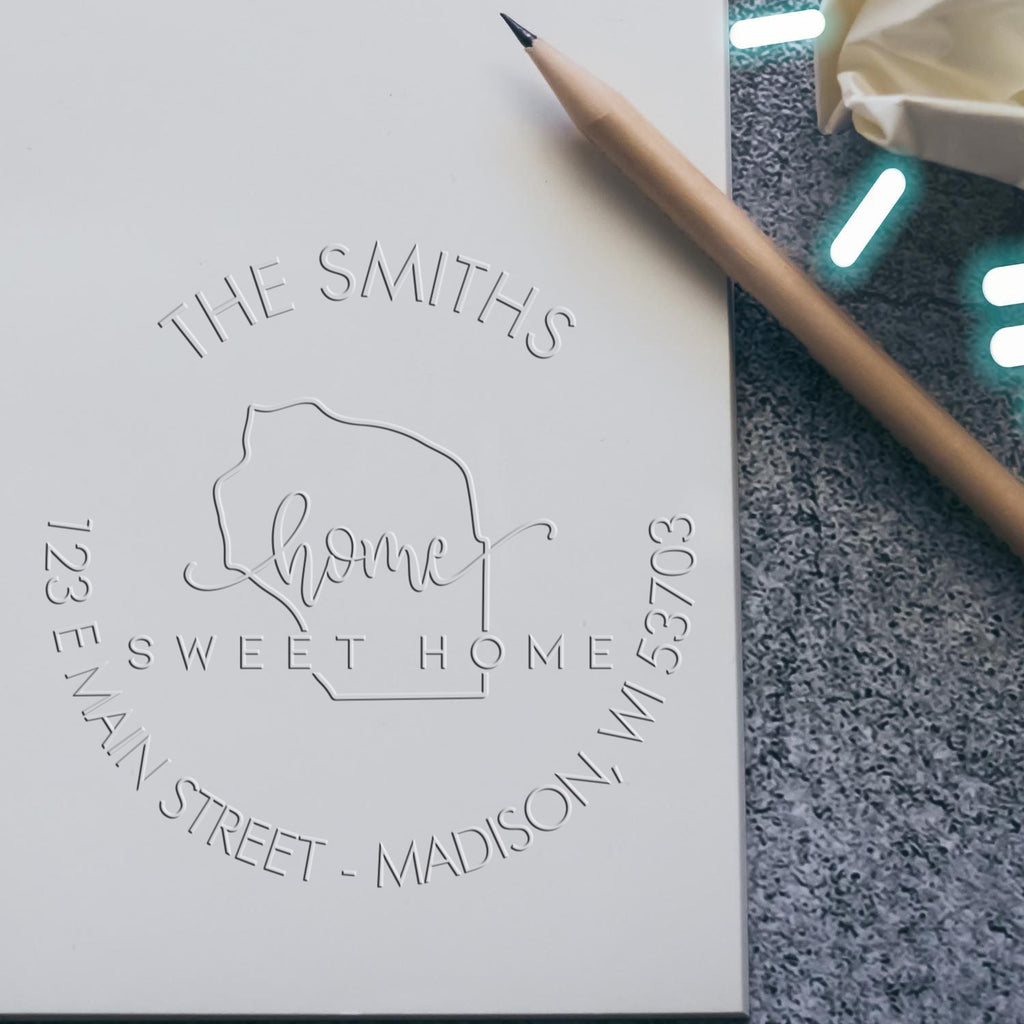 THE SMITHS
home
SWEET HOME
123 E MAIN STREET - MADISON, WI 53703